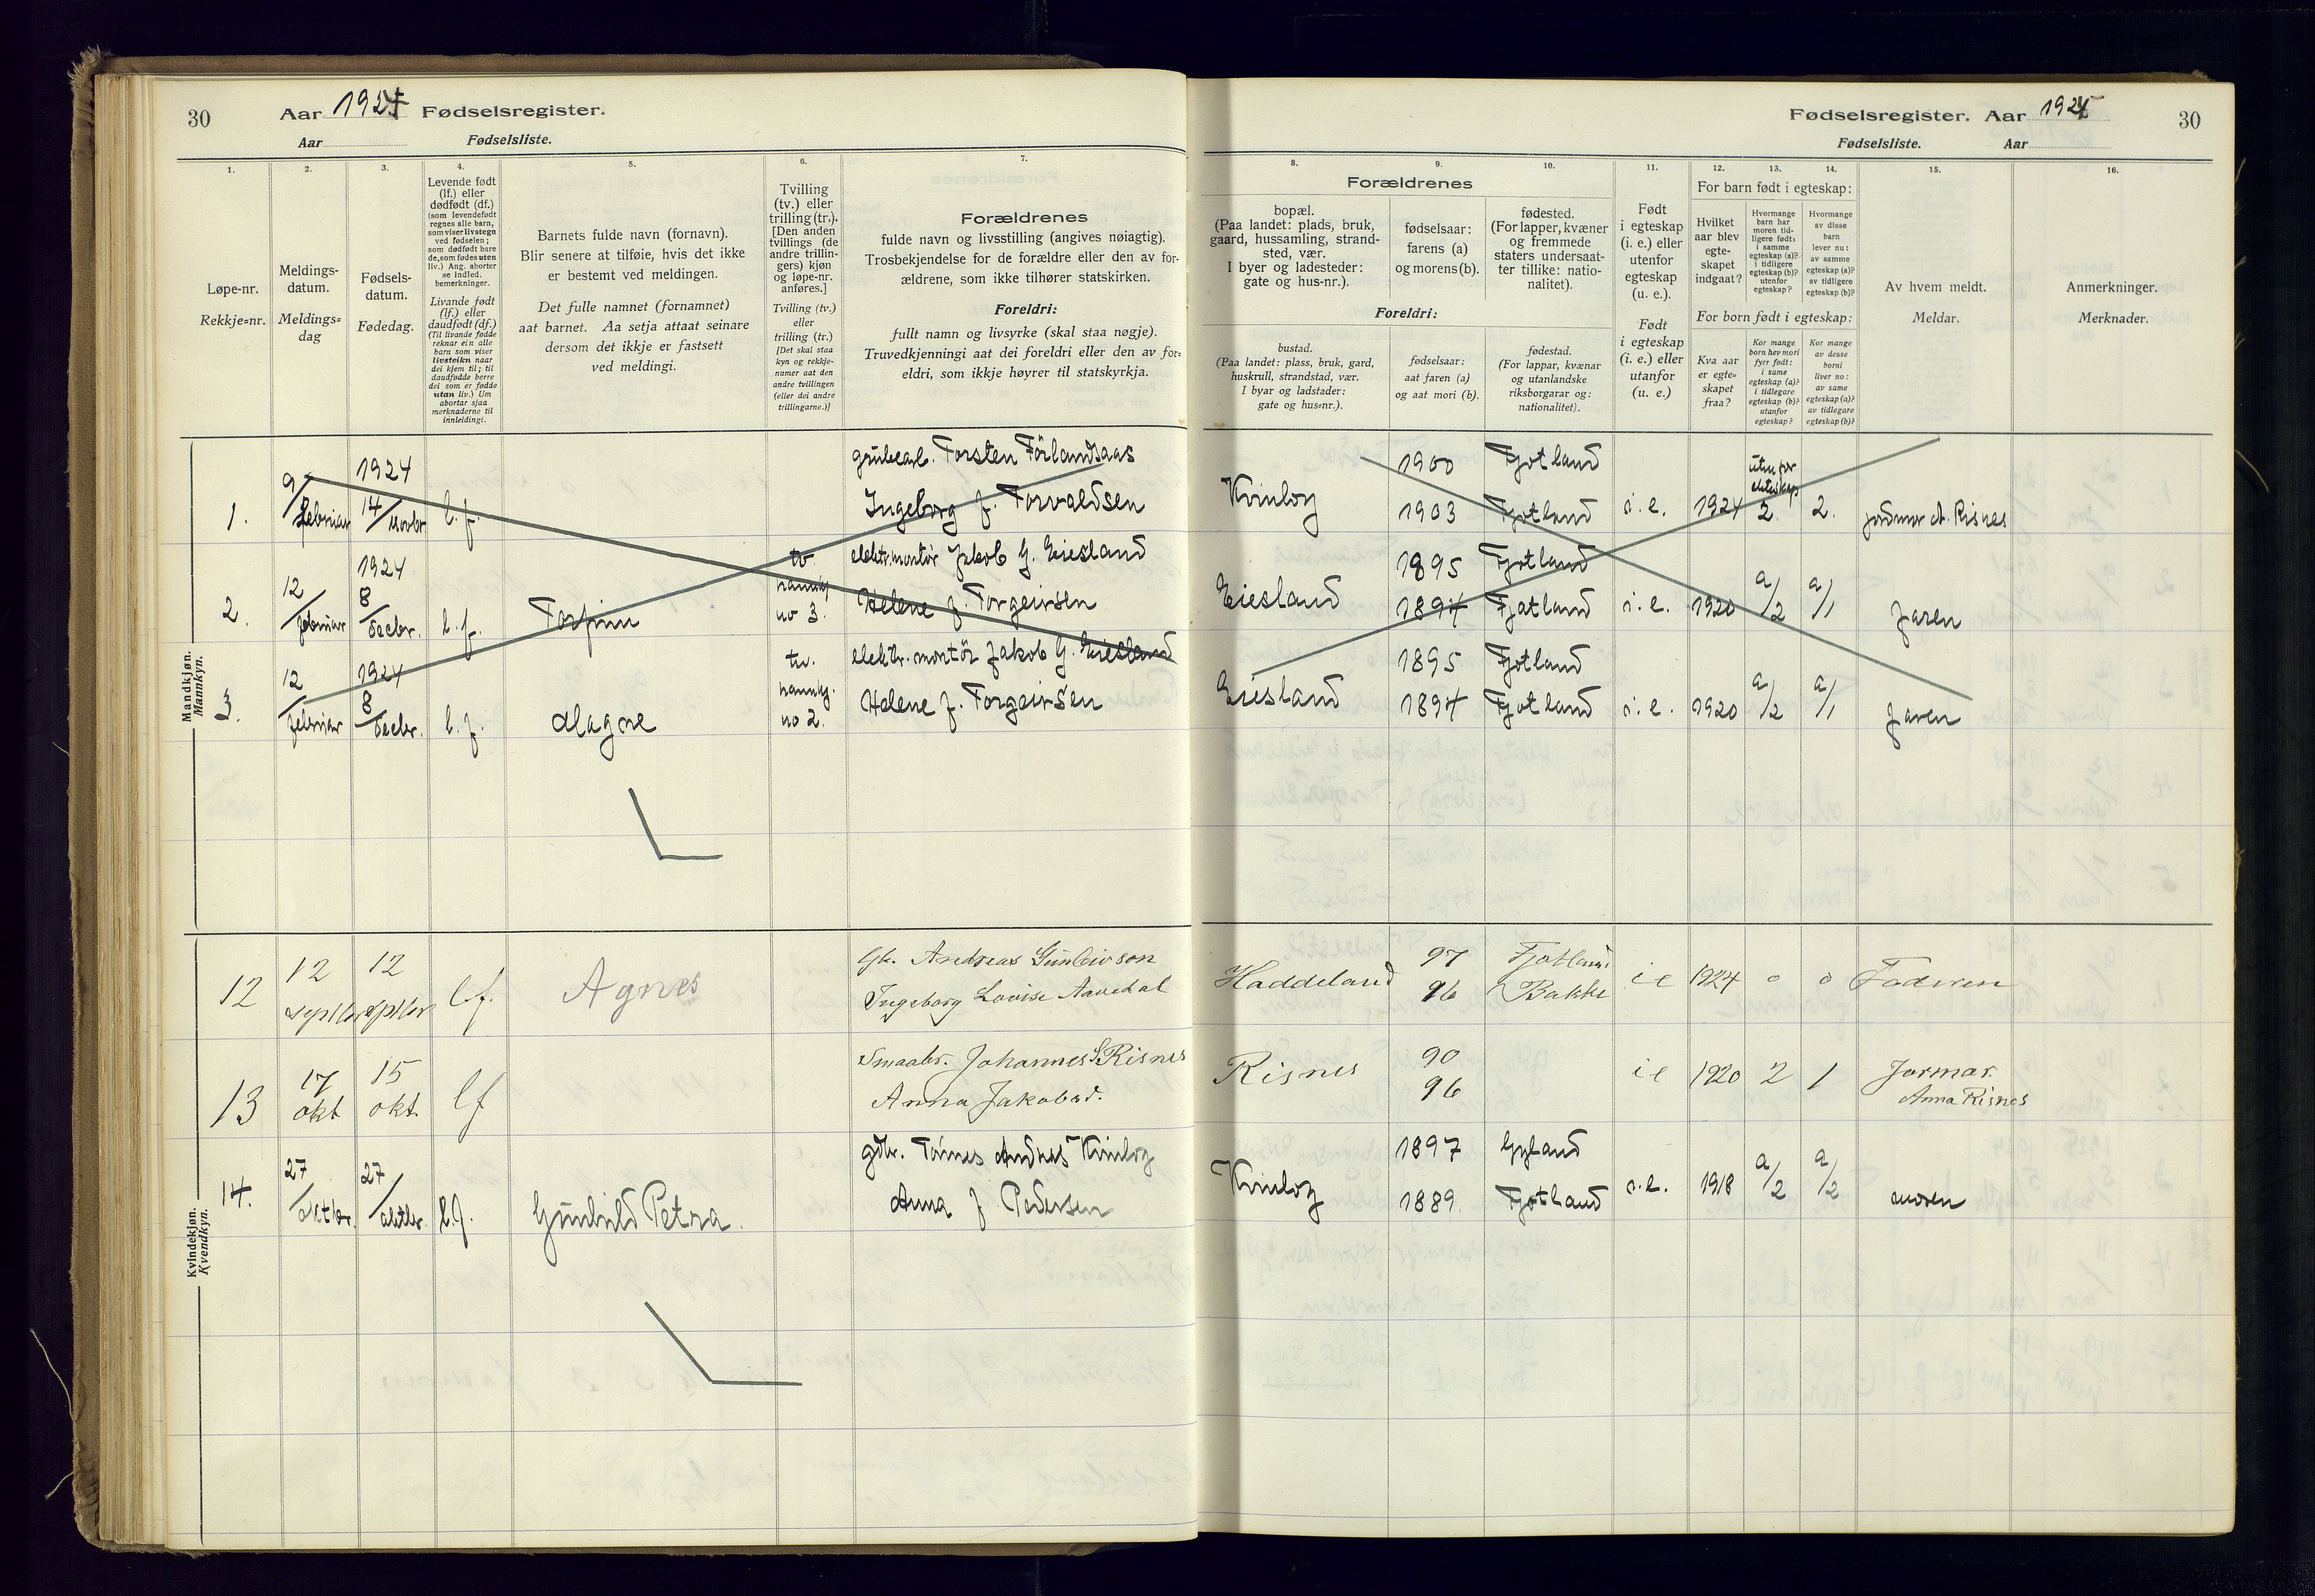 30
Aar 1924 Fødselsregister.
Aar Fødselsliste.
1.
2.
3.
4.
5.
6.
7.
Løpe-nr.
Rekkje=nr.
Meldings-
datum.
Meldings=
dag
Fødsels-
datum.
Fødedag.
Levende født
(lf.) eller
dødfødt (df.)
(som levendefødt
regnes alle barn,
som viser livstegn
ved fødselen;
som dødfødt bare
de, som fødes uten
liv.) Ang. aborter
se indled.
bemerkninger.
Livande født
(lf.) eller
daudfødt (df.)
(Til livande fødde
reknar ein alle
barn som viser
livsteikn naar
dei kjem til; til
daudfødde berre
dei som er fødde
utan liv.) Um
abortar sjaa
merknaderne til
innleidingi.
Barnets fulde navn (fornavn).
Blir senere at tilføie, hvis det ikke
er bestemt ved meldingen.
Det fulle namnet (fornamnet)
aat barnet. Aa setja attaat seinare
dersom det ikkje er fastsett
ved meldingi.
Tvilling
(tv.) eller
trilling (tr.).
[Den anden
tvillings (de
andre trillin-
gers) kjøn
og løpe-nr.
anføres.]
Tvilling (tv.)
eller
trilling (tr.)
[Det skal staa
kyn og rekkje-
numer aat den
andre tvillingen
(eller dei andre
trillingarne.)]
Forældrenes
fulde navn og livsstilling (angives nøiagtig).
Trosbekjendelse for de forældre eller den av for-
ældrene, som ikke tilhører statskirken.
Foreldri:
fullt namn og livsyrke (skal staa nøgje).
Truvedkjenningi aat dei foreldri eller den av for=
eldri, som ikkje høyrer til statskyrkja.
Mandkjøn.
Mannkyn.
1.
9/Februar
1924
14/Novbr.
l. f.
Torsten Førlandsaas
Ingeborg f. Torvaldsen
2.
12/februar
1924
8/Decbr.
l. f.
Torfinn
tv.
no 3.
elektr. montør Jakob G. Eiesland
Helene f. Torgeirsen
3.
12/februar
1924
8/Decbr.
l. f.
Magne
tv.
no 2.
elektr. montør Jakob G. Eiesland
Helene f. Torgeirsen
Kvindekjøn.
Kvendkyn.
12
12
septbr
12
septbr
lf.
Agnes
Gbr. Andreas Gunleivson
Ingeborg Lovise Aavedal
13
17
okt
15
okt.
lf
Smaabr. Johannes S. Risnes
Anna Jakobsd.
14.
27/oktbr.
27/oktbr.
l.f.
Gunhild Petra.
gbr. Tønnes Andreas Kvinlog
Anna f Pedersen
Fødselsregister. Aar 1924
30
Fødselsliste. Aar
8.
9.
10.
11.
12.
13.
14.
15.
16.
Forældrenes
bopæl.
(Paa landet: plads, bruk,
gaard, hussamling, strand-
sted, vær.
I byer og ladesteder:
gate og hus-nr.).
fødselsaar:
farens (a)
og morens (b).
fødested.
(For lapper, kvæner
og fremmede
staters undersaat-
ter tillike: natio-
nalitet).
Foreldri:
bustad.
(Paa landet: plass, bruk, gard,
huskrull, strandstad, vær.
I byar og ladstader:
gate og hus=nr.).
fødselsaar:
aat faren (a)
og aat mori (b).
fødestad.
(For lappar, kvænar
og utanlandske
riksborgarar og:
nationalitet).
Født
i egteskap
(i. e.) eller
utenfor
egteskap
(u. e.).
Født
i egteskap
(i. e.) eller
utanfor
(u. e.)
For barn født i egteskap:
Hvilket
aar blev
egte-
skapet
indgaat?
Hvormange
barn har
moren tid-
ligere født:
i samme
egteskap (a)?
i tidligere
egteskap (b)?
utenfor
egteskap?
Hvormange
av disse
barn
lever nu:
av samme
egteskap (a)?
av tidligere
egteskap (b)?
For born født i egteskap:
Kva aar
er egte=
skapet
fraa?
Kor mange
born hev mori
fyr født:
i same
egteskap (a)?
i tidlegare
egteskap (b)?
utanfor
egteskap?
Kor mange
av desse
borni
liver no:
av same
egteskap (a)?
av tidlegare
egteskap (b)?
Av hvem meldt.
Meldar.
Anmerkninger.
Merknader.
Kvinlog
1900
1903
Fjotland
Fjotland
i. e.
1924
utenfor
ekteskap
2.
2.
jordmor A. Risnes
Eiesland
1895
1894
Fjotland
Fjotland
i. e.
1920
a/2
a/1
faren
Eiesland
1895
1894
Fjotland
Fjotland
i. e.
1920
a/2
a/1
faren
Haddeland
97
96
Fjotland
Bakke
i e
1924
0
0
Faderen
Risnes
90
96
i e
1920
2
1
Jormor.
Anna Risnes
Kvinlog
1897
1889.
Gyland
Fjotland
i. e.
1918
a/2
a/2
moren